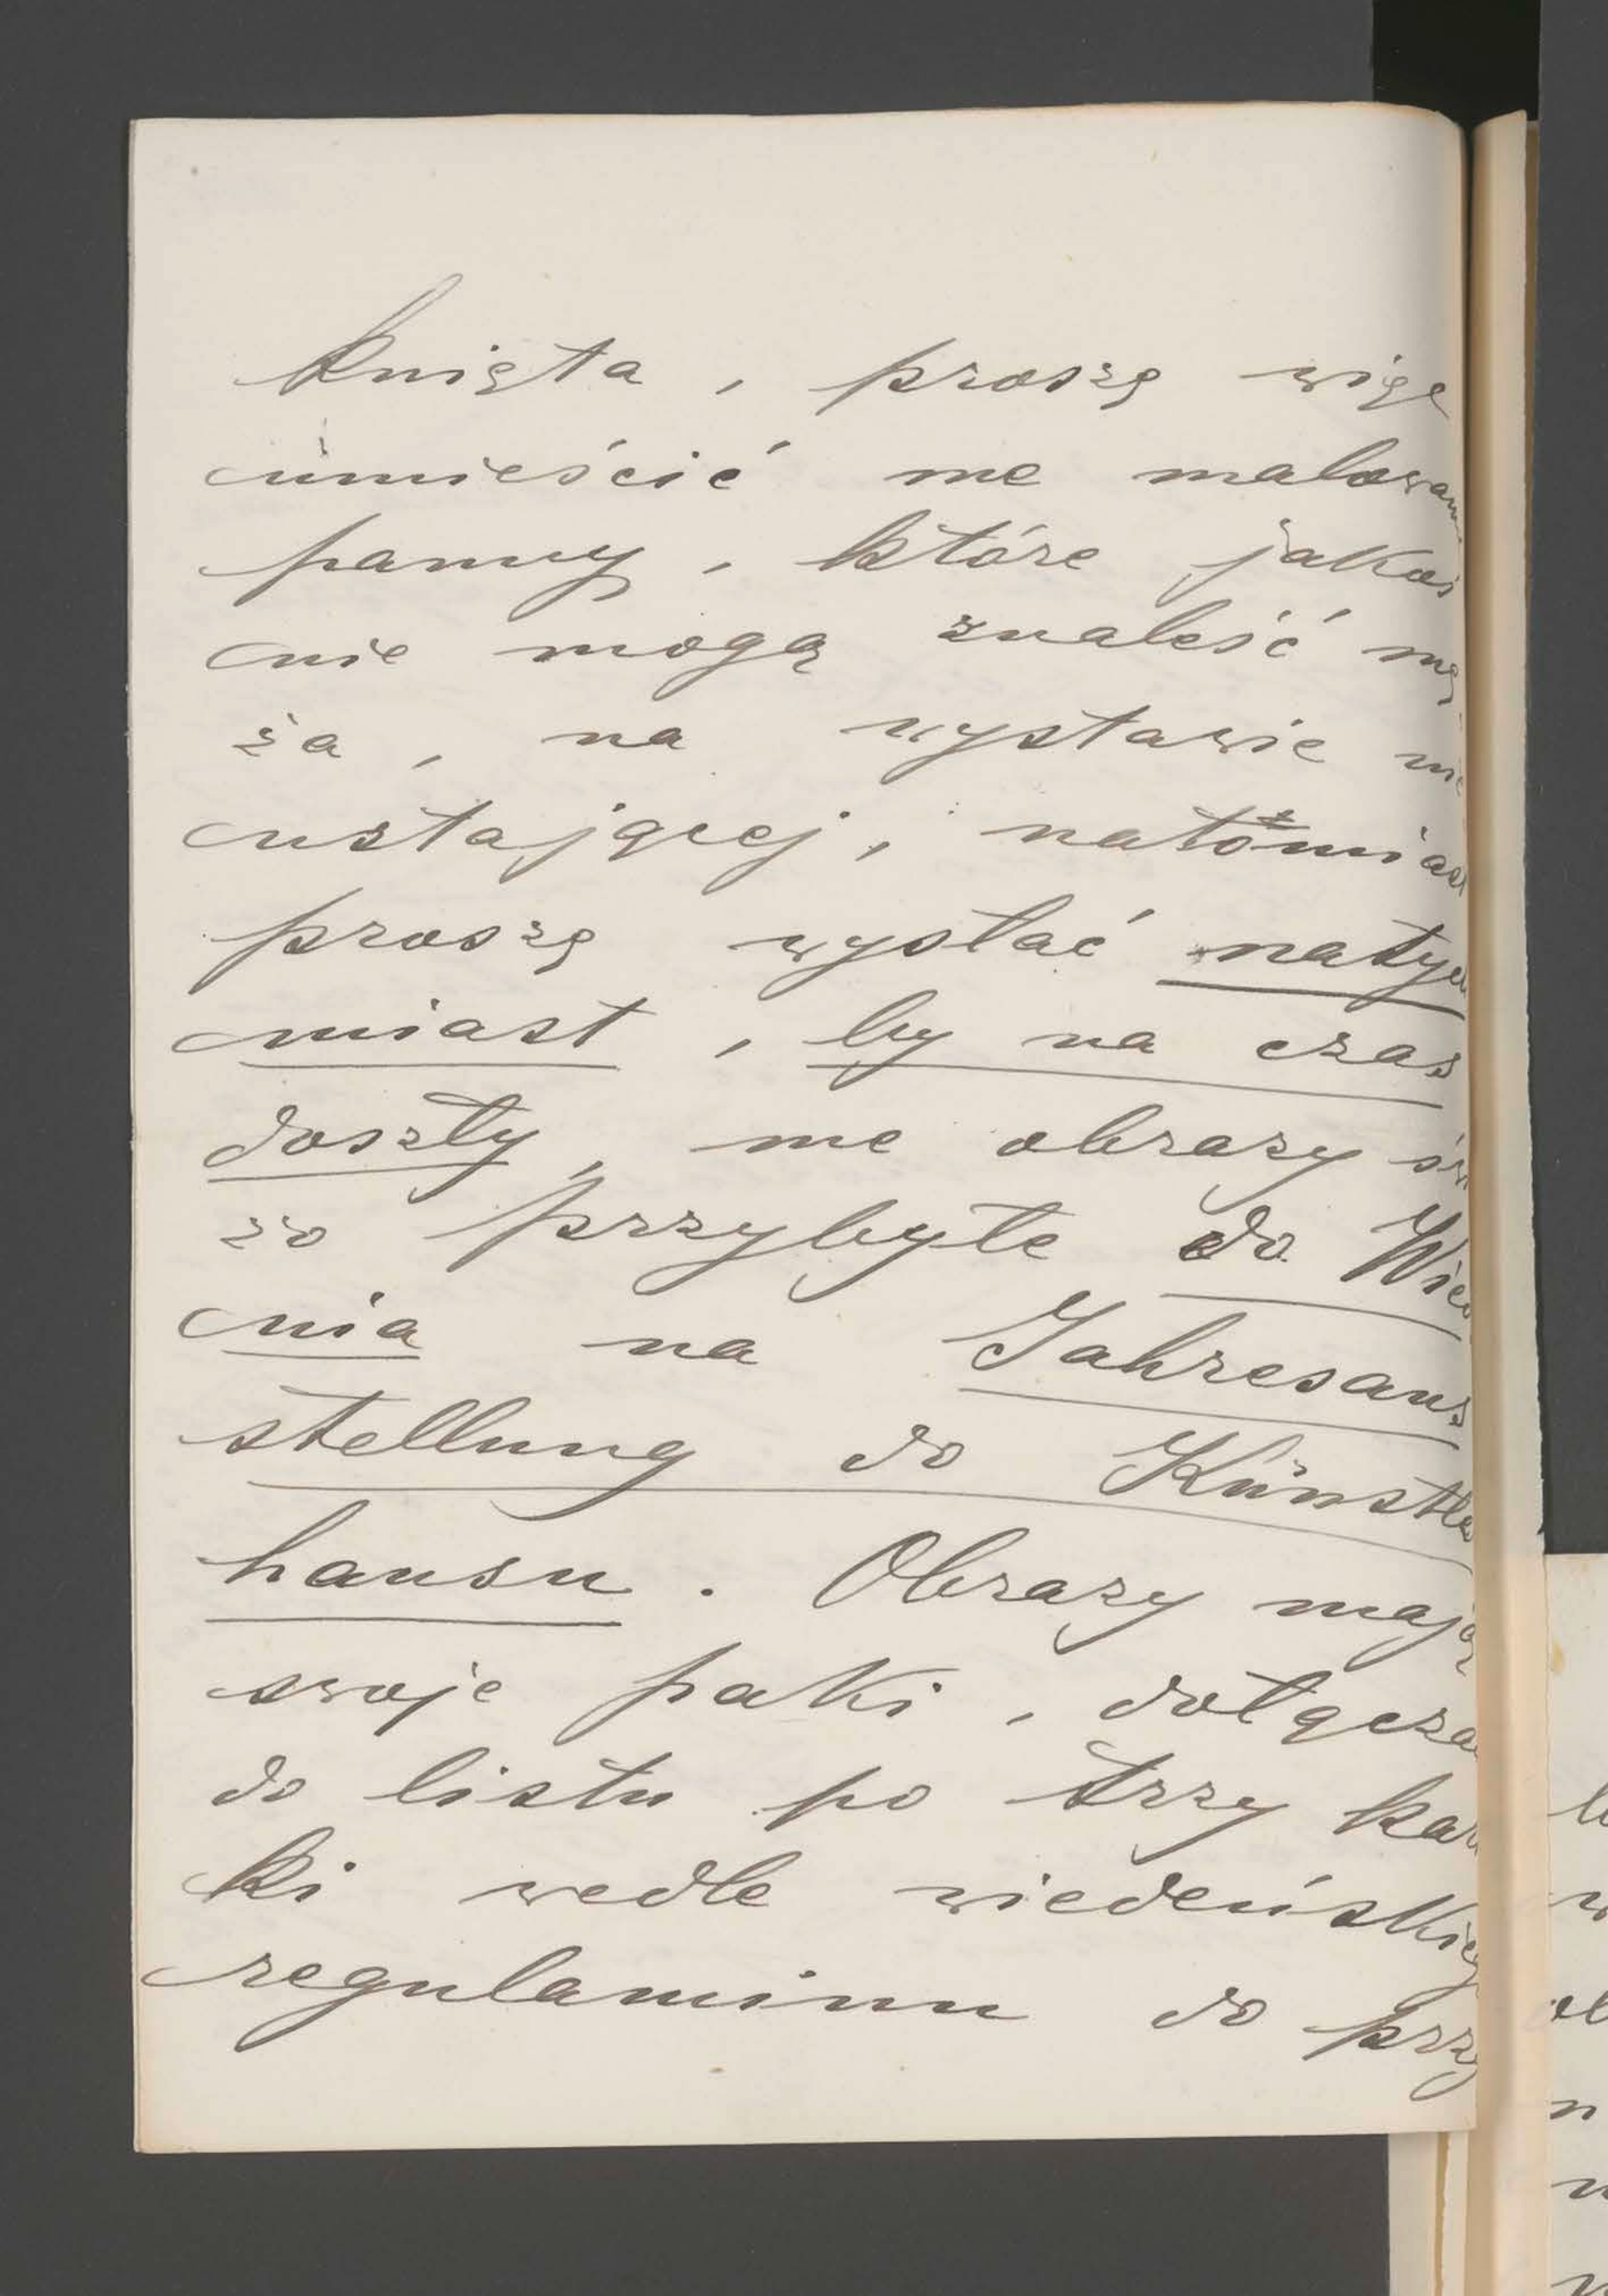 knięta, proszę więc
umieścić me malowane
panny, które jakoś
nie mogą znaleść mę-
ża, na wystawie nie
ustającej, natomiast
proszę wysłać natych
miast, by na czas
doszły, me obrazy świ
żo przybyłe do Wied
nia na Jahresaus
stellung do Künstler
hausu. Obrazy mają
swoje paki, dołączam
do listu po trzy kart
ki wedle wiedeńskiego
regulaminu do przy